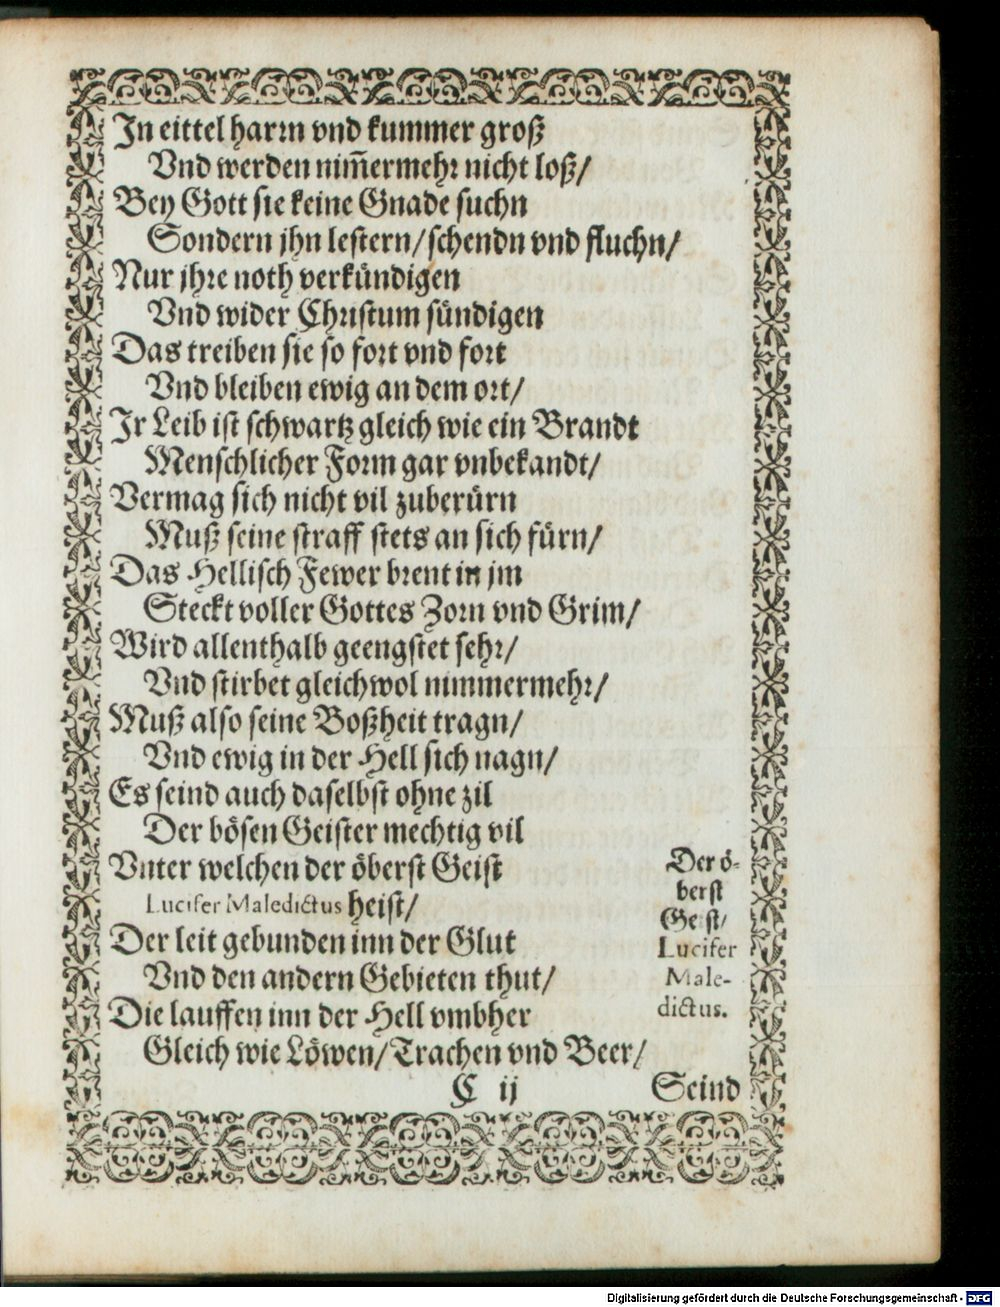 In eittel harm vnd kummer groß
Vnd werden nim̄ermehr nicht loß/
Bey Gott sie keine Gnade suchn
Sondern jhn lestern/schendn vnd fluchn/
Nur jhre noth verkündigen
Vnd wider Christum sündigen
Das treiben sie so fort vnd fort
Vnd bleiben ewig an dem ort/
Ir Leib ist schwartz gleich wie ein Brandt
Menschlicher Form gar vnbekandt/
Vermag sich nicht vil zuberürn
Muß seine straff stets an sich fürn/
Das Hellisch Fewer brent in jm
Steckt voller Gottes Zorn vnd Grim/
Wird allenthalb geengstet sehr/
Vnd stirbet gleichwol nimmermehr/
Muß also seine Boßheit tragn/
Vnd ewig in der Hell sich nagn/
Es seind auch daselbst ohne zil
Der bösen Geister mechtig vil
Vnter welchen der öberst Geist
Lucifer Maledictus heist/
Der leit gebunden inn der Glut
Vnd den andern Gebieten thut/
Die lauffen inn der Hell vmbher
Gleich wie Löwen/Trachen vnd Beer/
Der ö-
berst
Geist/
Lucifer
Male-
dictus.
C ij
Seind
Digitalisierung gefördert durch die Deutsche Forschungsgemeinschaft - DFG